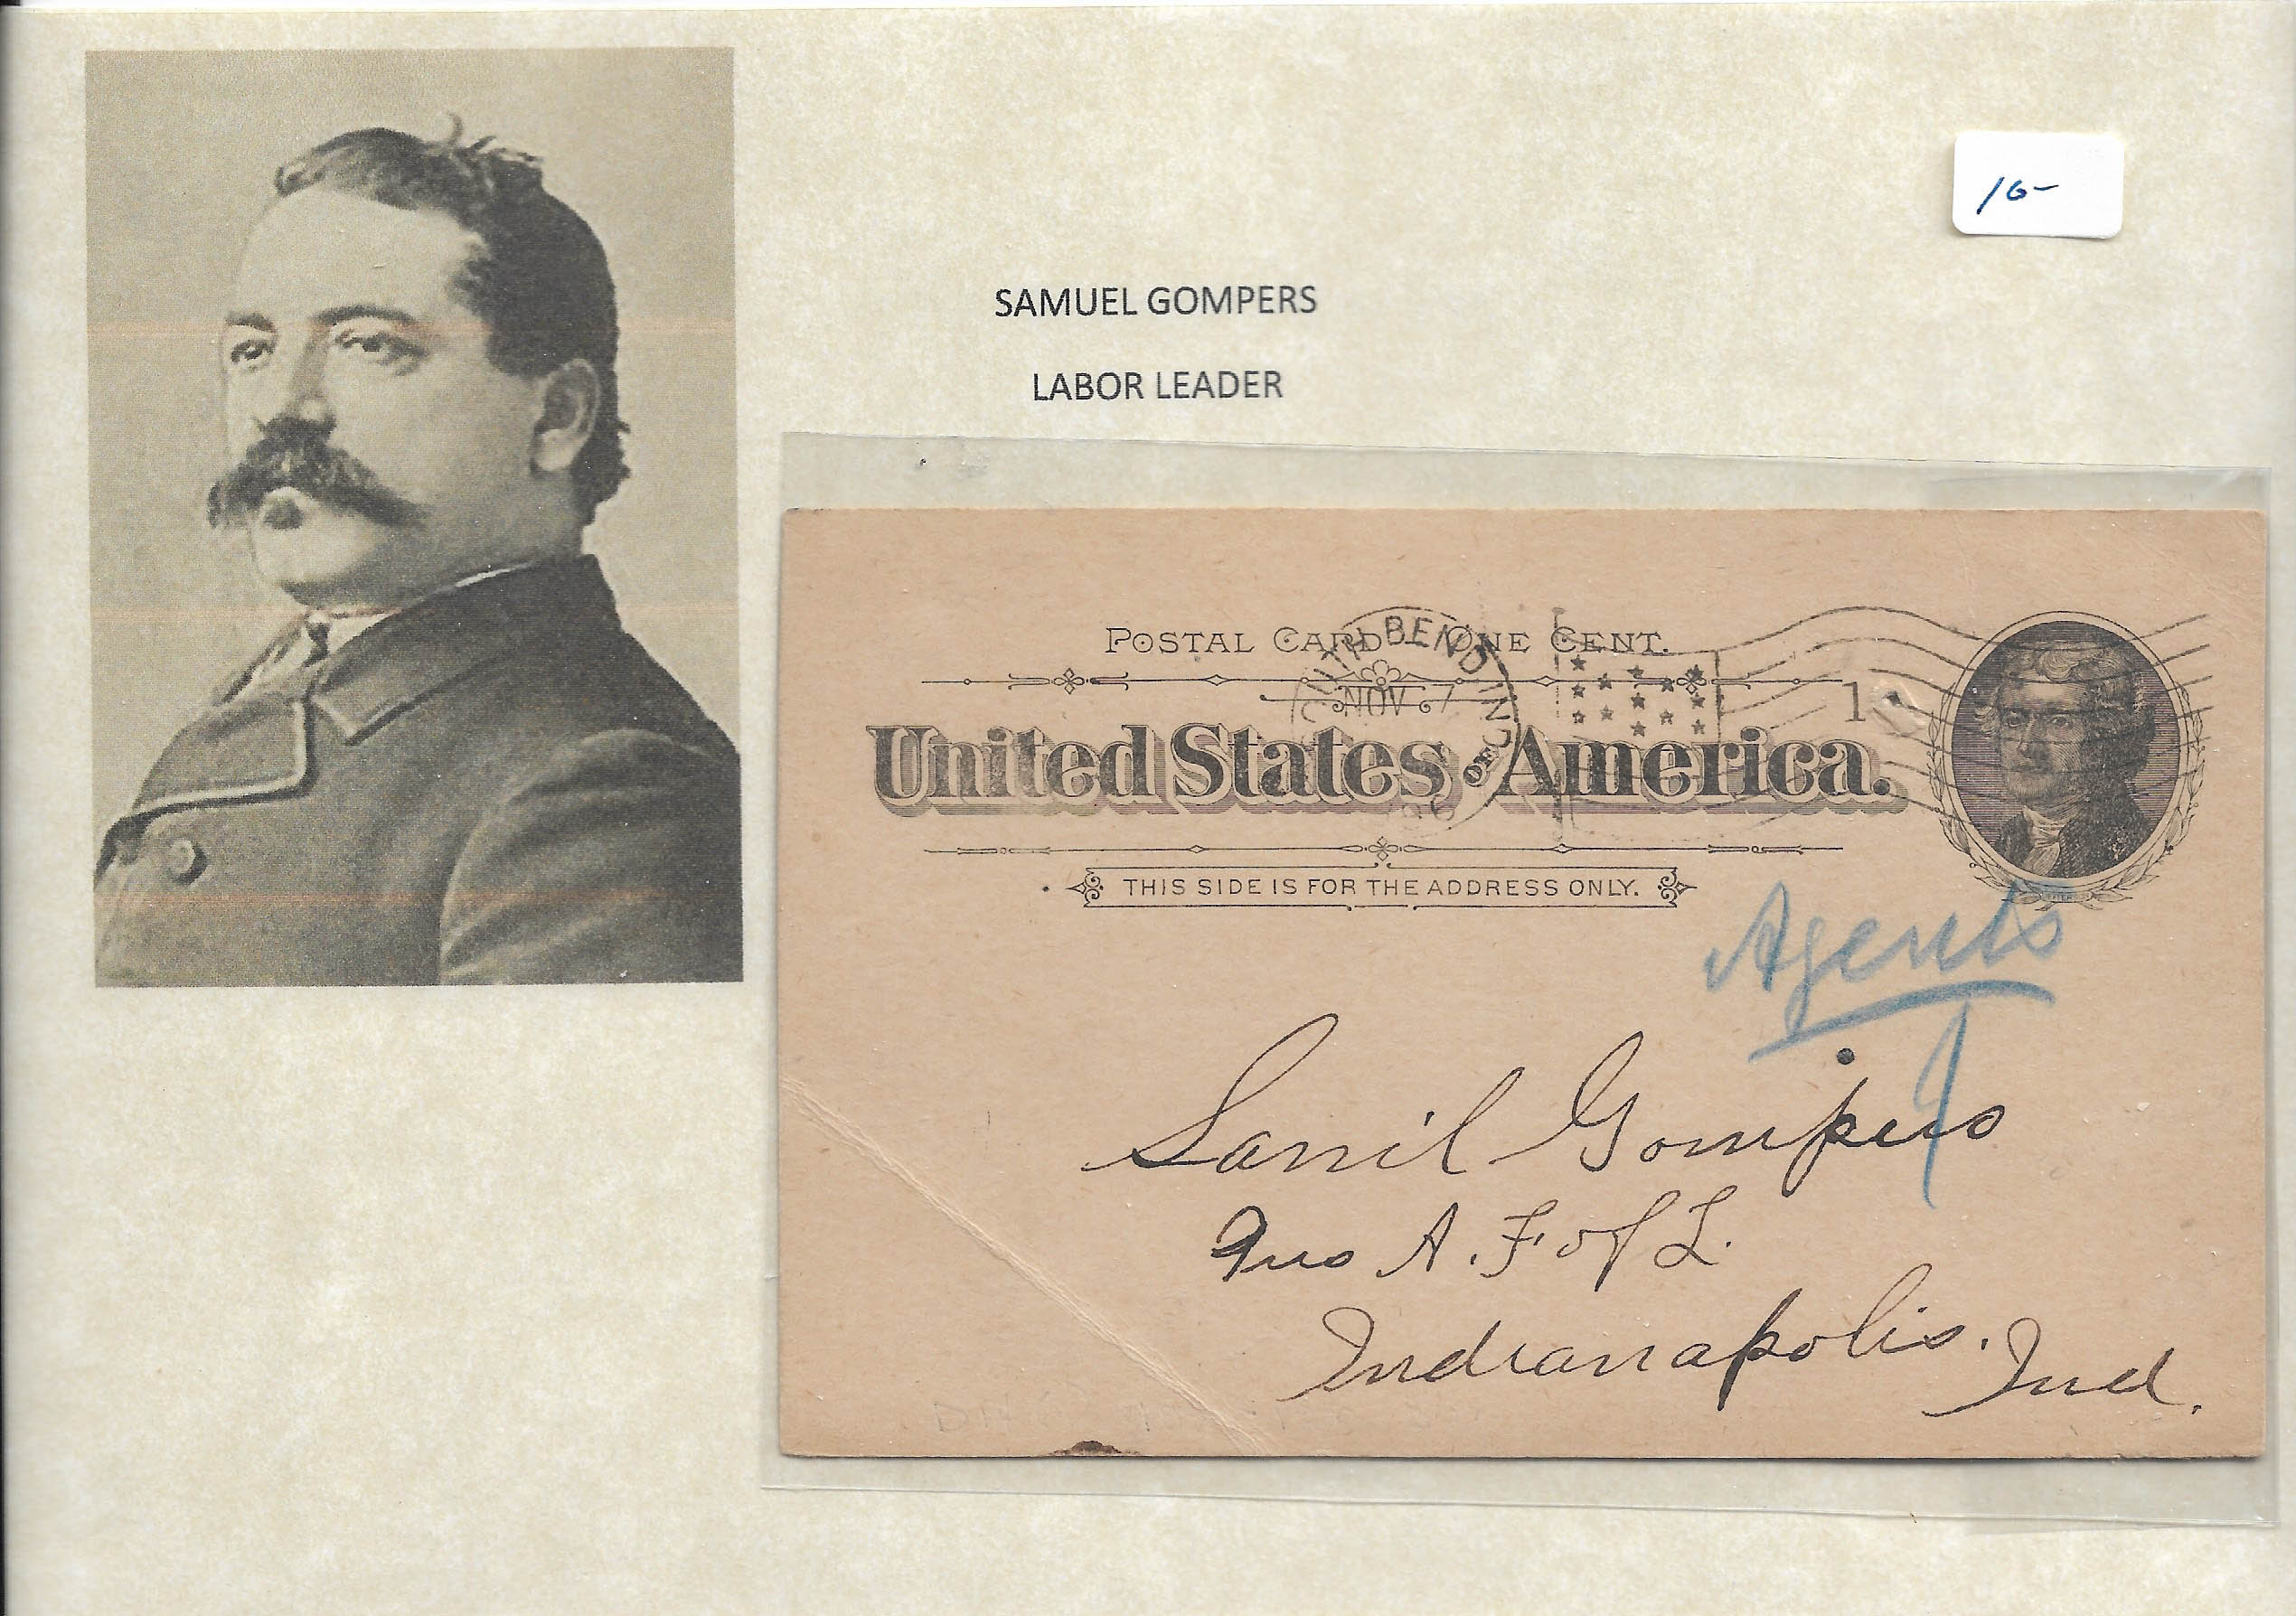 16-
SAMUEL GOMPERS
LABOR LEADER
POSTAL CARD - ONE CENT.
SOUTH BEND IND
NOV 7
1
United States of America.
96
THIS SIDE IS FOR THE ADDRESS ONLY.
Agents
Saml Gompers
A. F of L.
Indianapolis. Ind.